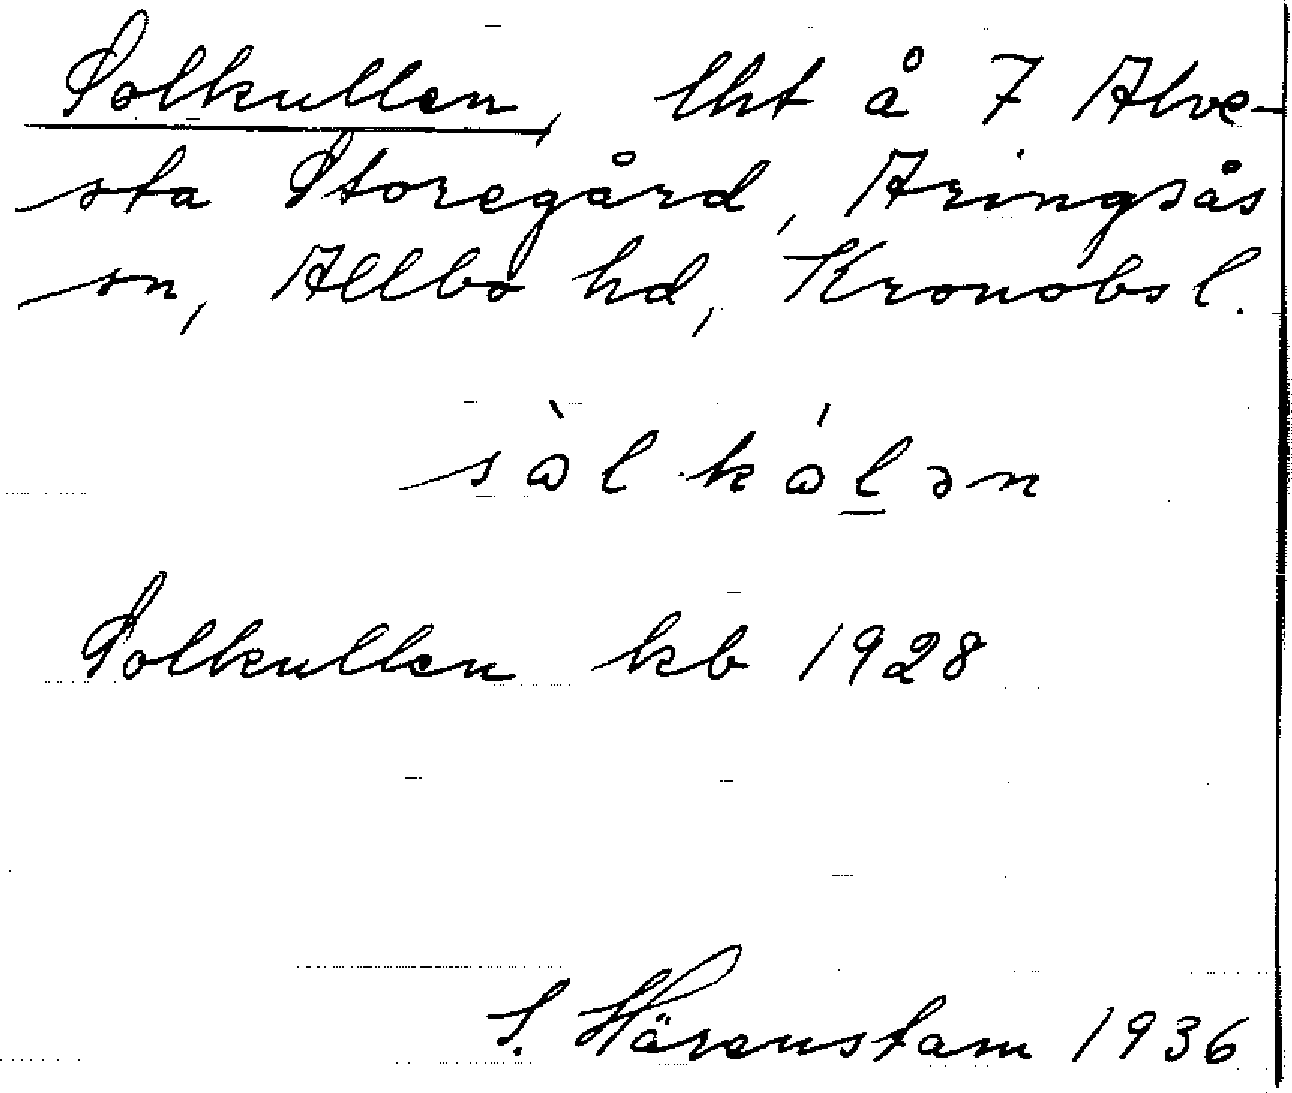 Solkullen, lht å 7 Alve-
sta Storegård, Aringsås
sn, Allbo hd, Kronobs l.
sὼl kώl̲ən
Solkullen kb 1928
S. Härenstam 1936